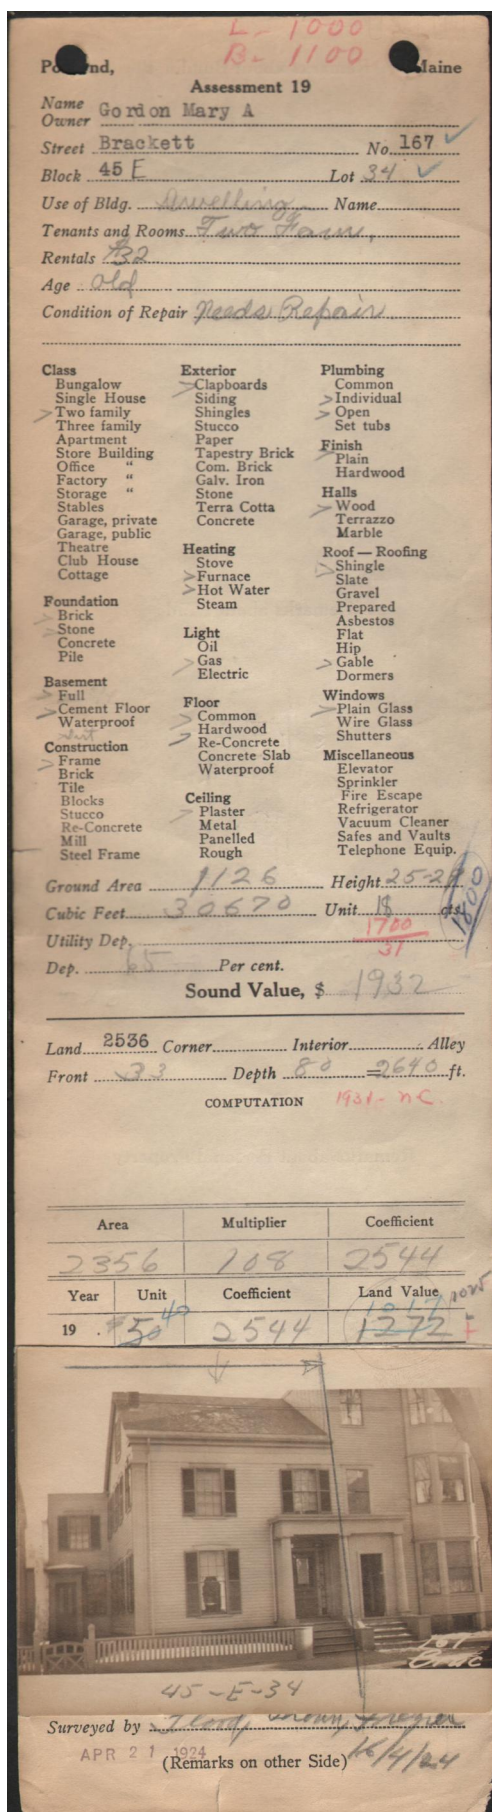 L- 1000
B- 1100
Po nd, Maine
Assessment 19
Name
Owner Gordon Mary A
Street Brackett No. 167 ✓
Block 45 E Lot 34 ✓
Use of Bldg. Dwelling Name
Tenants and Rooms Two Fam.
Rentals $32
Age old
Condition of Repair Needs Repair
Class
Bungalow
Single House
> Two family
Three family
Apartment
Store Building
Office "
Factory "
Storage "
Stables
Garage, private
Garage, public
Theatre
Club House
Cottage
Foundation
> Brick
> Stone
Concrete
Pile
Basement
> Full
> Cement Floor
Waterproof
Construction
> Frame
Brick
Tile
Blocks
Stucco
Re-Concrete
Mill
Steel Frame
Exterior
> Clapboards
Siding
Shingles
Stucco
Paper
Tapestry Brick
Com. Brick
Galv. Iron
Stone
Terra Cotta
Concrete
Heating
Stove
> Furnace
> Hot Water
Steam
Light
Oil
> Gas
Electric
Floor
> Common
Hardwood
> Re-Concrete
Concrete Slab
Waterproof
Ceiling
> Plaster
Metal
Panelled
Rough
Plumbing
Common
> Individual
> Open
Set tubs
Finish
> Plain
Hardwood
Halls
> Wood
Terrazzo
Marble
Roof — Roofing
> Shingle
> Slate
Gravel
Prepared
Asbestos
Flat
Hip
> Gable
Dormers
Windows
> Plain Glass
Wire Glass
Shutters
Miscellaneous
Elevator
Sprinkler
Fire Escape
Refrigerator
Vacuum Cleaner
Safes and Vaults
Telephone Equip.
Ground Area 1126 Height 25-29
Cubic Feet 30670 Unit 18 cts.
1800
Utility Dep. 1700
31
Dep. 65 Per cent.
Sound Value, $ 1932
Land 2536 Corner Interior Alley
Front 33 Depth 80 = 2640 ft.
COMPUTATION 1931- N C.
Area Multiplier Coefficient
2356 108 2544
Year Unit Coefficient Land Value
1025
40 1017
19 . $50 2544 1272
167
Brac
45-E-34
Surveyed by
APR 21 1924
(Remarks on other Side) 16/4/24